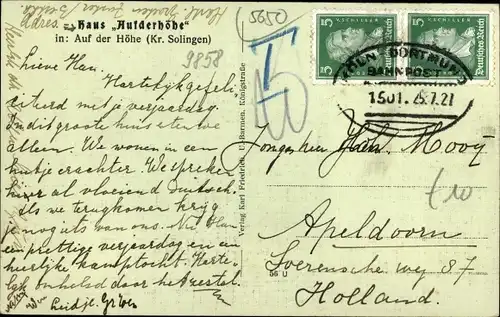 „Haus Aufderhöhe"
in: Auf der Höhe (Kr. Solingen)
(5650)
9858
Lieve Han.
Hartelijk gefeli-
citeerd met je verjaardag.
In dit groote huis eten we
alleen. We wonen in een
huisje erachter. We spreken
hier al vloeiend Duitsch.
Als we terugkomen krijg
je nog iets van ons. Nu Han
een prettige verjaardag en een
heerlijke kamptocht. Harte-
lijk omhelsd door het
Liedje.
Verlag Karl Friedrich, Barmen, Königstraße
56 U
T
10
F. v. SCHILLER
5 Deutsches Reich 5
F. v. SCHILLER
5 Deutsches Reich 5
KÖLN-DORTMUND
BAHNPOST
Z.1501. 25.7.27
Jongeheer Han Mooij
Apeldoorn
Soerensche weg 87
Holland.